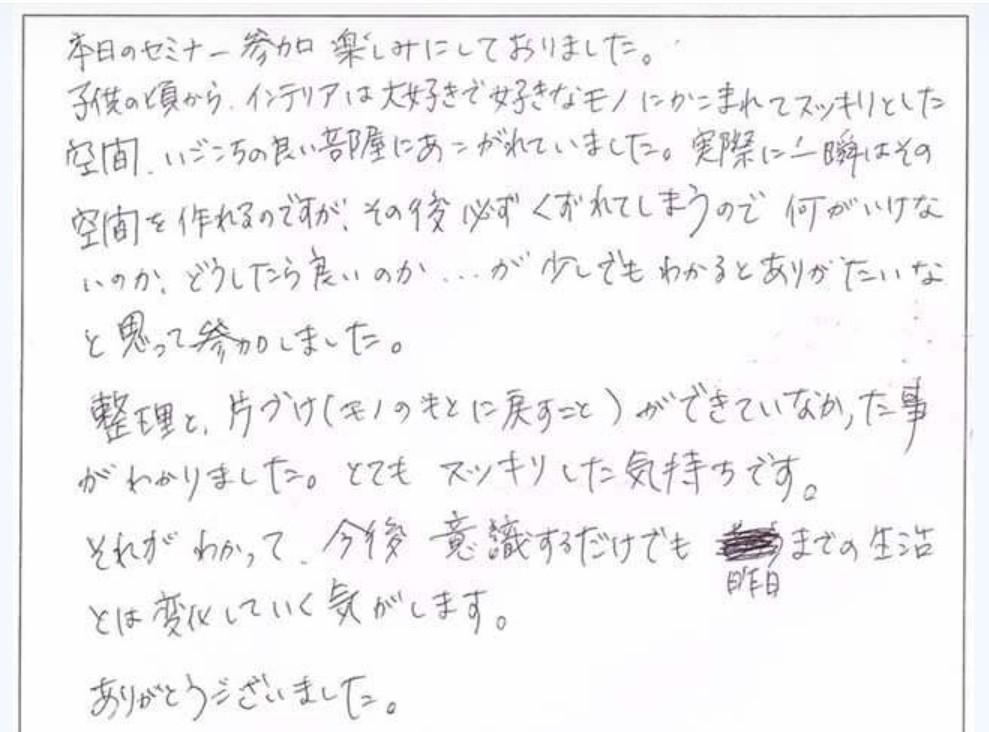 本日のセミナー参加 楽しみにしておりました。
子供の頃から、インテリアは大好きで好きなモノにかこまれてスッキリとした
空間、いごこちの良い部屋にあこがれていました。実際に一瞬はその
空間を作れるのですが、その後必ずくずれてしまうので 何がいけな
いのか、どうしたら良いのか...が 少しでもわかるとありがたいな
と思って参加しました。
整理と、片づけ(モノのもとに戻すこと)ができていなかった事
がわかりました。とても スッキリした気持ちです。
それが わかって、今後 意識するだけでも までの生活
昨日
とは変化していく気がします。
ありがとうございました。